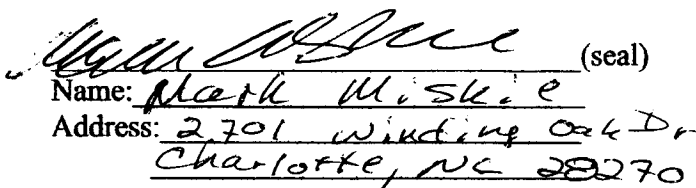 (seal)
Name: Mark Miskie
Address: 2701 Winding Oak Dr
Charlotte, NC 28270